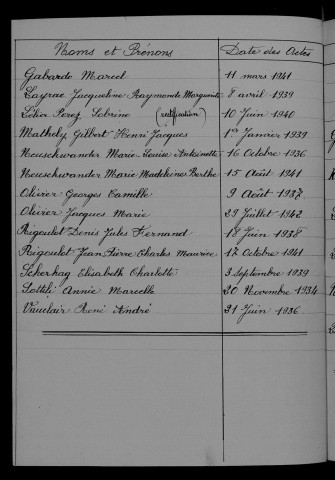 Noms et Prénoms Date des Actes
Gabardo Marcel 11 mars 1941
Layrac Jacqueline Raymonde Marguerite 8 avril 1939
Perez Sobrine (rectification) 10 Juin 1940
Mathely Gilbert Henri Jacques 1er Janvier 1939
Neuschwander Marie Louise Antoinette 16 Octobre 1936
Neuschwander Marie Madeleine Berthe 15 Août 1941
Olivier Georges Camille 9 Août 1937
Olivier Jacques Marie 29 Juillet 1942
Rigoulot Denis Jules Fernand 18 Juin 1938
Rigoulot Jean Pierre Charles Maurice 17 Octobre 1941
Scherhag Elisabeth Charlotte 3 Septembre 1939
Année Marcelle 20 Novembre 1934
Vauclair René André 21 Juin 1936